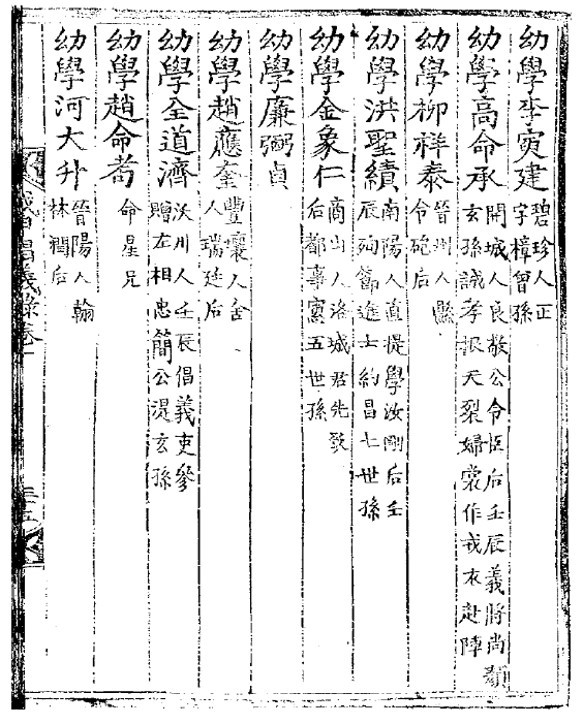 幼學李寅建 碧珍人正
字樟曾孫
幼學高命承 開城人良敬公令臣后壬辰義將尚顏
玄孫誠孝根天裂婦裳作戎衣赴陣
幼學柳祥泰 晉州人縣
令砲后
幼學洪聖績 南陽人直提學汝剛后壬
辰殉節進士約昌七世孫
幼學金象仁 商山人洛城君先致
后都事寔五世孫
幼學廉弼貞
幼學趙應奎 豐壤人舍
人瑞廷后
幼學全道濟 沃川人壬辰倡義吏參
贈左相忠簡公湜玄孫
幼學趙命耉 命星兄
幼學河大升 晉陽人翰
林后
倡義錄卷